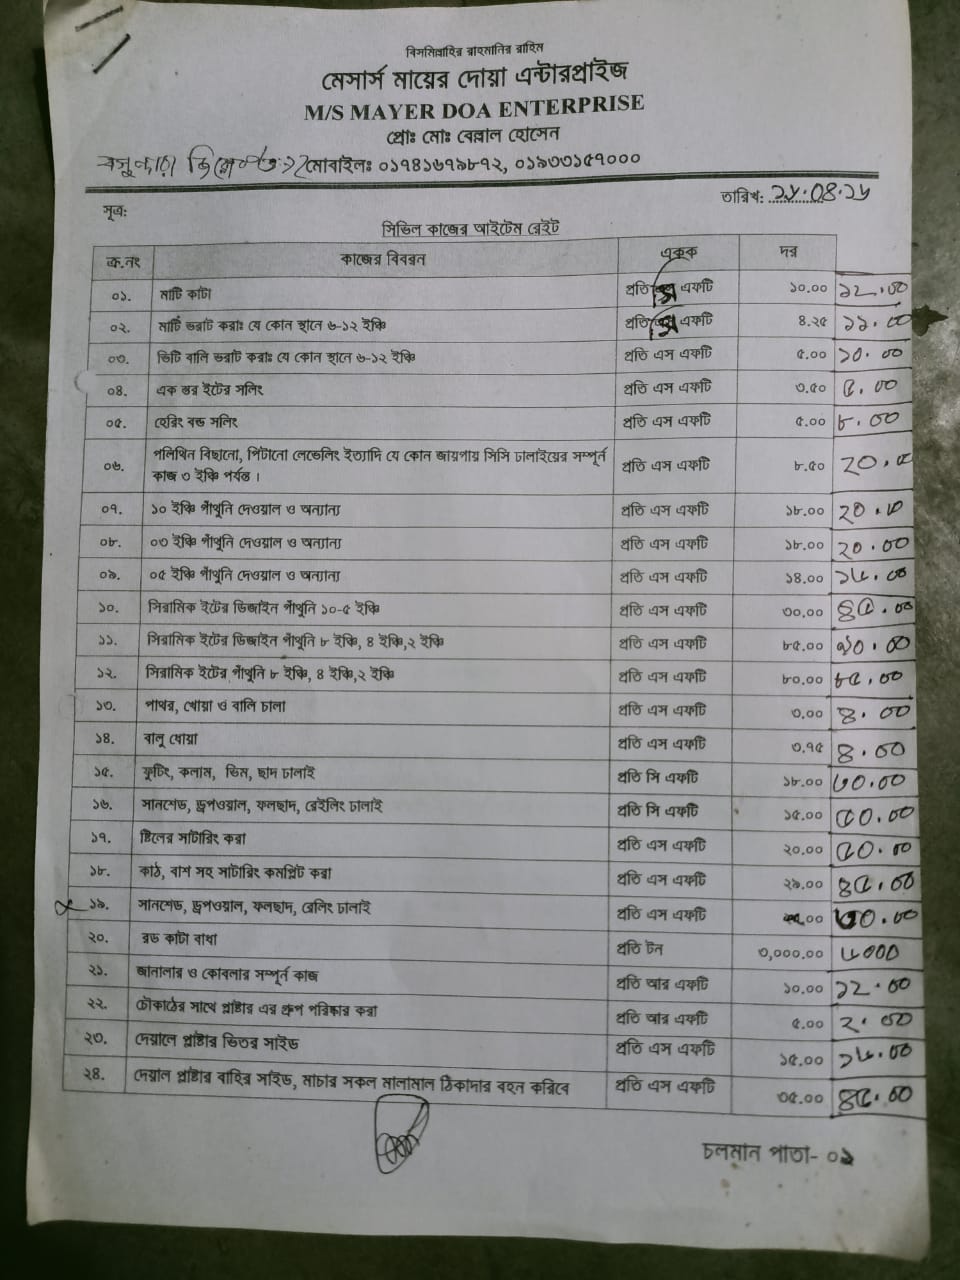 বিসমিল্লাহির রাহমানির রাহিম
মেসার্স মায়ের দোয়া এন্টারপ্রাইজ
M/S MAYER DOA ENTERPRISE
প্রোঃ মোঃ বেল্লাল হোসেন
মোবাইলঃ ০১৭৪১৬৭৯৮৭২, ০১৯৩৩১৫৭০০০
তারিখ: ২৮.০৪.২৫
সূত্র:
সিভিল কাজের আইটেম রেইট
ক্র.নং কাজের বিবরন একক দর
০১. মাটি কাটা প্রতি এফটি ১০.০০ ১২.০০
০২. মাটি ভরাট করাঃ যে কোন স্থানে ৬-১২ ইঞ্চি প্রতি এফটি ৪.২৫ ১১.০০
০৩. ভিটি বালি ভরাট করাঃ যে কোন স্থানে ৬-১২ ইঞ্চি প্রতি এস এফটি ৫.০০ ১০.০০
০৪. এক স্তর ইটের সলিং প্রতি এস এফটি ৩.৫০ ৫.০০
০৫. হেরিং বন্ড সলিং প্রতি এস এফটি ৫.০০ ৮.০০
০৬. পলিথিন বিছানো, পিটানো লেভেলিং ইত্যাদি যে কোন জায়গায় সিসি ঢালাইয়ের সম্পূর্ন
কাজ ৩ ইঞ্চি পর্যন্ত । প্রতি এস এফটি ৮.৫০ ২০.০০
০৭. ১০ ইঞ্চি গাঁথুনি দেওয়াল ও অন্যান্য প্রতি এস এফটি ১৮.০০ ২০.০০
০৮. ০৩ ইঞ্চি গাঁথুনি দেওয়াল ও অন্যান্য প্রতি এস এফটি ১৮.০০ ২০.০০
০৯. ০৫ ইঞ্চি গাঁথুনি দেওয়াল ও অন্যান্য প্রতি এস এফটি ১৪.০০ ১৮.০০
১০. সিরামিক ইটের ডিজাইন গাঁথুনি ১০-৫ ইঞ্চি প্রতি এস এফটি ৩০.০০ ৪৫.০০
১১. সিরামিক ইটের ডিজাইন গাঁথুনি ৮ ইঞ্চি, ৪ ইঞ্চি,২ ইঞ্চি প্রতি এস এফটি ৮৫.০০ ৯০.০০
১২. সিরামিক ইটের গাঁথুনি ৮ ইঞ্চি, ৪ ইঞ্চি,২ ইঞ্চি প্রতি এস এফটি ৮০.০০ ৮৫.০০
১৩. পাথর, খোয়া ও বালি চালা প্রতি এস এফটি ৩.০০ ৪.০০
১৪. বালু ধোয়া প্রতি এস এফটি ৩.৭৫ ৪.০০
১৫. ফুটিং, কলাম, ভিম, ছাদ ঢালাই প্রতি সি এফটি ১৮.০০ ৩০.০০
১৬. সানশেড, ড্রপওয়াল, ফলছাদ, রেইলিং ঢালাই প্রতি সি এফটি ১৫.০০ ৫০.০০
১৭. ষ্টিলের সাটারিং করা প্রতি এস এফটি ২০.০০ ৫০.০০
১৮. কাঠ, বাশ সহ সাটারিং কমপ্লিট করা প্রতি এস এফটি ২৯.০০ ৪৫.০০
১৯. সানশেড, ড্রপওয়াল, ফলছাদ, রেলিং ঢালাই প্রতি এস এফটি .০০ ৩০.০০
২০. রড কাটা বাধা প্রতি টন ৩,০০০.০০ ৮০০০
২১. জানালার ও কোবলার সম্পূর্ন কাজ প্রতি আর এফটি ১০.০০ ১২.০০
২২. চৌকাঠের সাথে প্লাষ্টার এর গ্রুপ পরিষ্কার করা প্রতি আর এফটি ৫.০০ ২.০০
২৩. দেয়ালে প্লাষ্টার ভিতর সাইড প্রতি এস এফটি ১৫.০০ ১৮.০০
২৪. দেয়াল প্লাষ্টার বাহির সাইড, মাচার সকল মালামাল ঠিকাদার বহন করিবে প্রতি এস এফটি ৩৫.০০ ৪৫.০০
চলমান পাতা- ০১